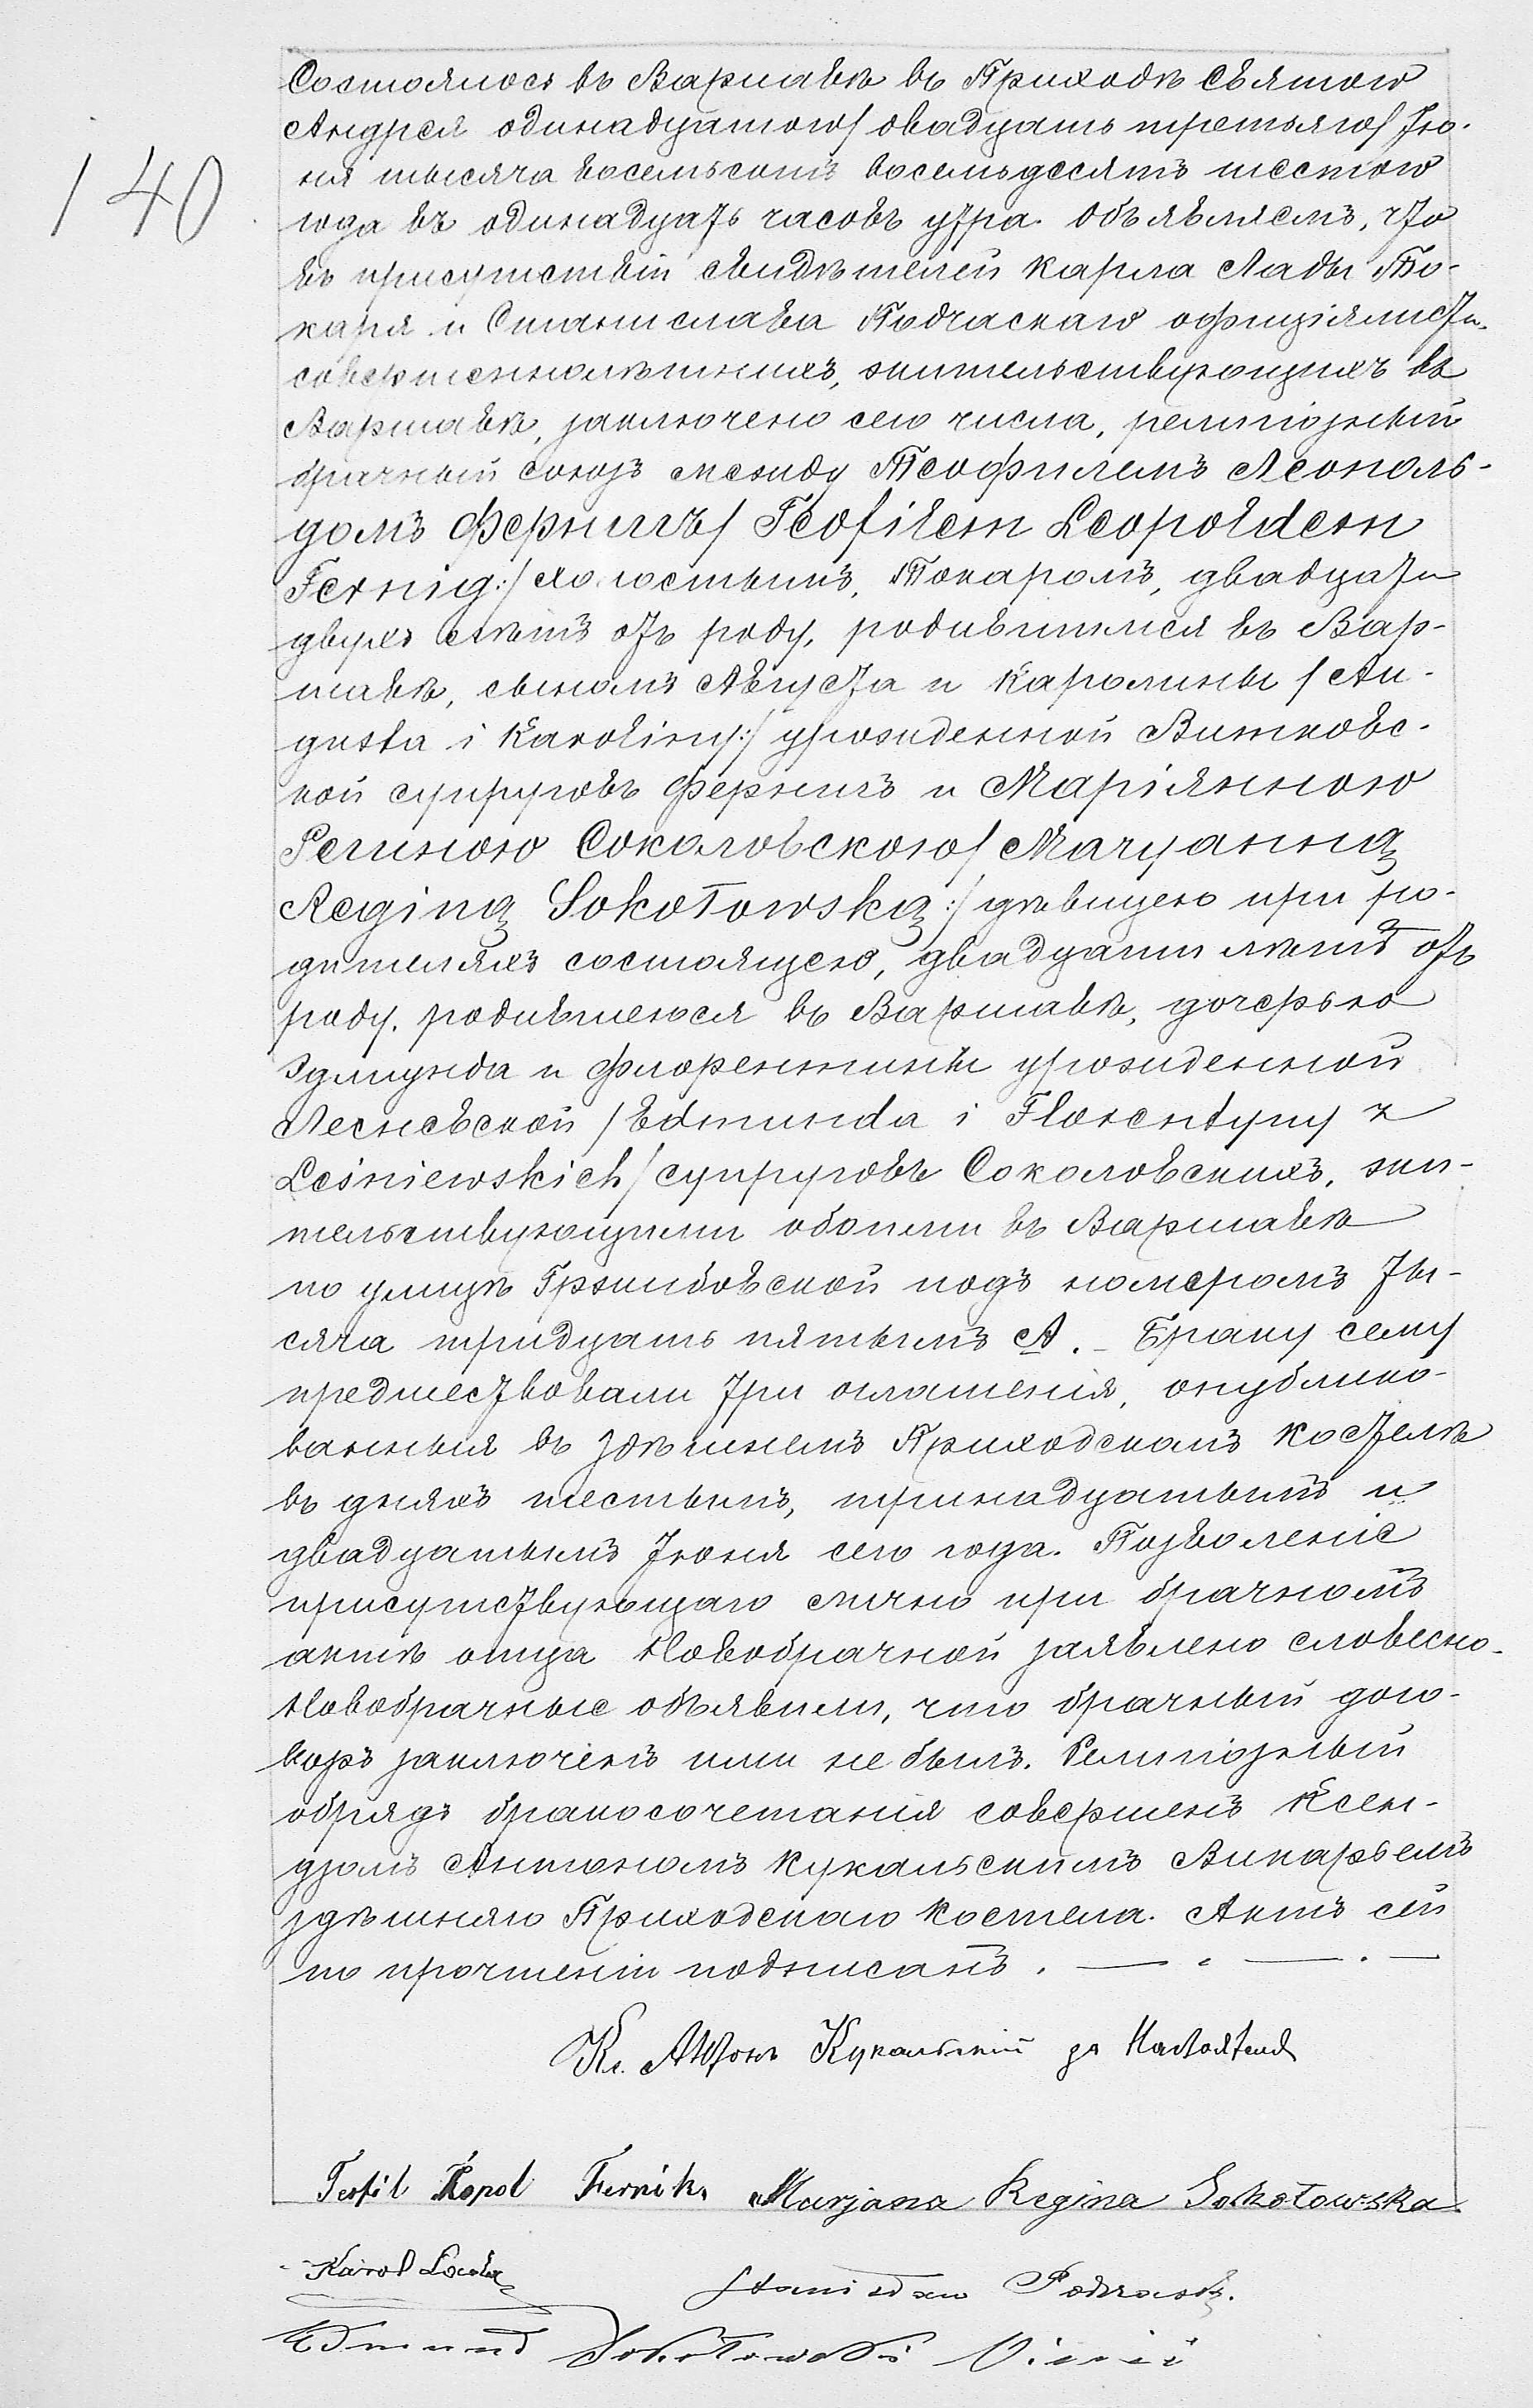 140
Состоялось въ Варшавѣ въ Приходѣ Святого
Андрея одинадцатого/ двадцать третьяго/ Ію-
ня тысяча восемьсотъ восемьдесятъ шестого
года въ одинадцать часовъ утра. Объявляемъ, что
въ присутствіи свидѣтелей Карла Лады То-
каря и Станислава Подчаскаго официялиста
совершеннолѣтнихъ, жительствующихъ въ
Варшавѣ, заключено сего числа, религіозный
брачный союзъ между Теофилемъ Леополь-
домъ Фернигъ/ Teofilem Leopoldem
Fernig:/ холостымъ, Токаромъ, двадцати
двухъ лѣтъ отъ роду, родившимся въ Вар-
шавѣ, сыномъ Августа и Каролины /Au-
gusta i Karoliny:/ урожденной Витковс-
кой супруговъ Фернигъ и Маріянною
Региною Соколовскою/ Maryanną
Reginą Sokołowską:/ дѣвицею при ро-
дителяхъ состоящею, двадцати лѣтъ отъ
роду, родившеюся въ Варшавѣ, дочерью
Эдмунда и Флорентины урожденной
Леснсвской /Edmunda i Florentyny z
Leśniewskich/ супруговъ Соколовскихъ, жи-
тельствующими обоими въ Варшавѣ
по улицѣ Гржибовской подъ номеромъ ты-
сяча тридцать пятымъ А. - Браку сему
предшествовали три оглашенія, опублико-
ванныя въ здѣшнемъ Приходскомъ костелѣ
въ дняхъ шестымъ, тринадцатымъ и
двадцатымъ Іюня сего года. Позволеніе
присутствующаго лично при брачномъ
актѣ отца Новобрачной заявлено словесно.
Новобрачные объявили, что брачный дого-
воръ заключенъ ими не былъ. Религіозный
обрядъ бракосочетанія совершенъ Ксен-
дзомъ Антономъ Кукальскимъ Викарьемъ
здѣшняго Приходскаго Костела. Актъ сей
по прочтеніи подписанъ. — . — . —
Кс. Антонъ Кукальскій за Настоятеля
Teofil Lepol Fernik. Marjana Regina Sokołowska
Karol Łada
Stanisław Podczask.
Edmund Sokołowski